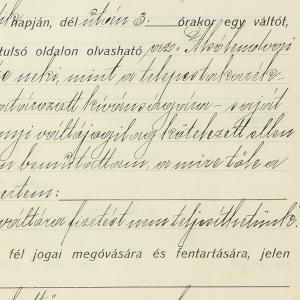 napján, dél után 3. órakor egy váltót,
tulsó oldalon olvasható az. Alsólendvai
neki, mint a telepes takarék-
határozott kívánságára - saját
váltójogilag kötelezett ellen
bemutattam, a mire tőle a
értem:
váltóra fizetést nem teljesíthetünk."
fél jogai megóvására és fentartására, jelen